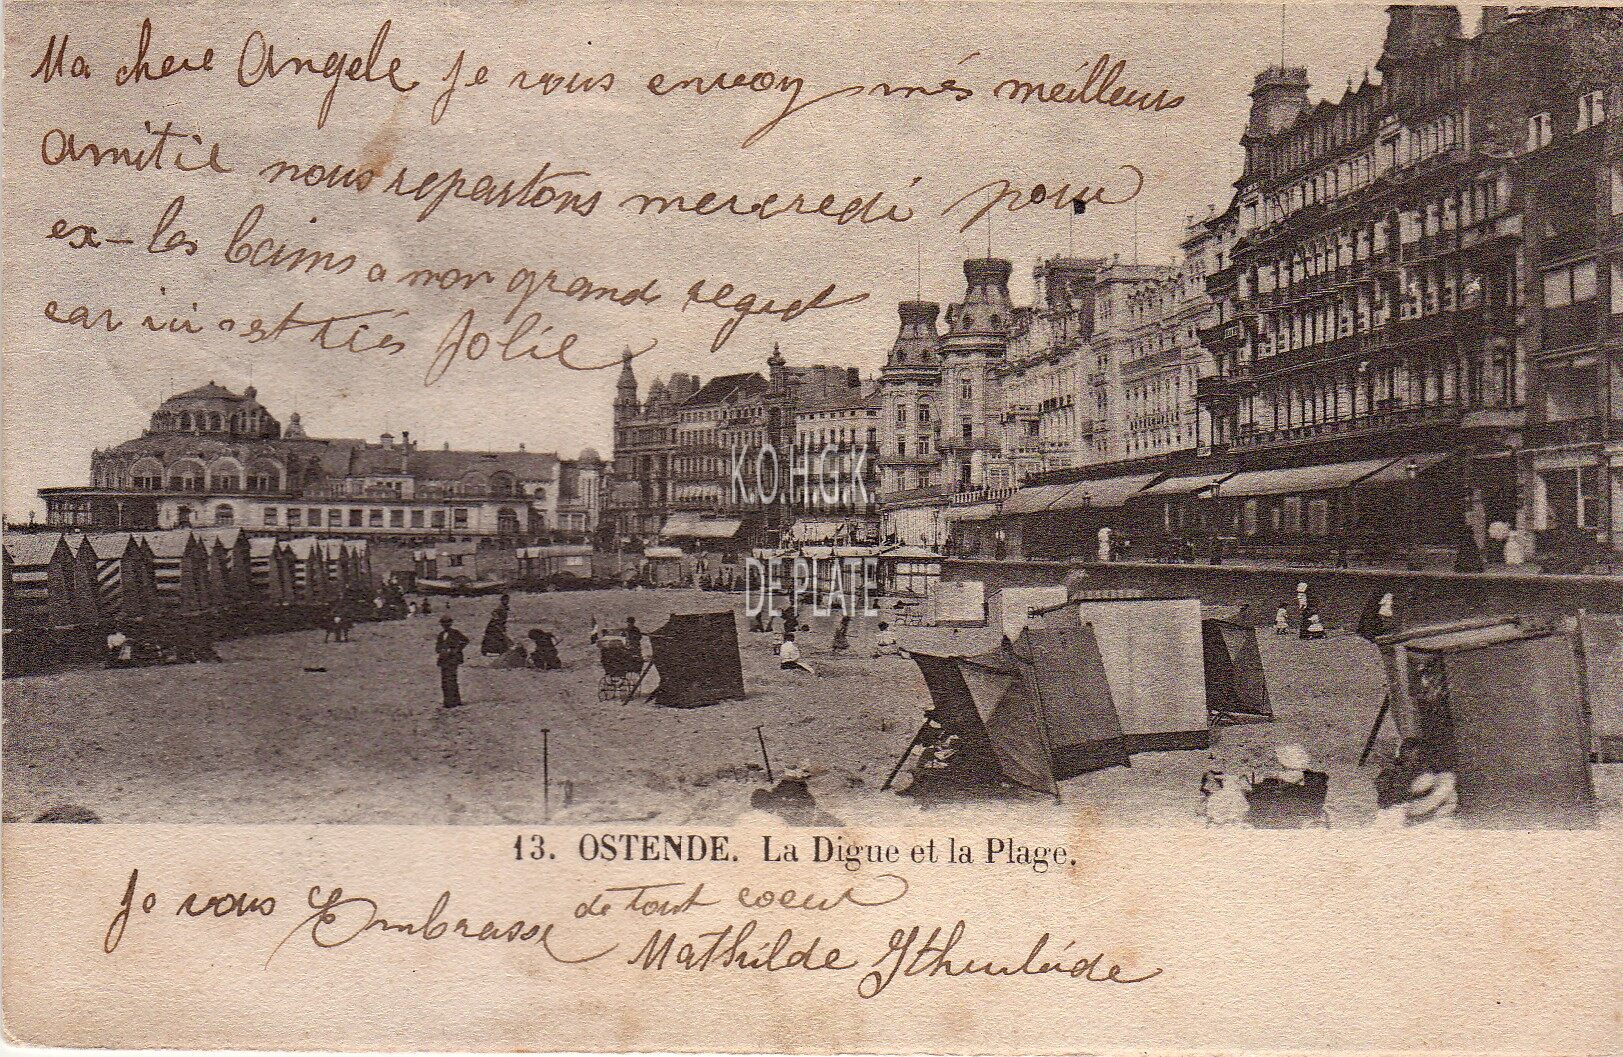 Ma chere Angele je vous envoy més meilleurs
amitie nous repartons mercredi pour
ex-les bains a mon grand regret
car ici est très Jolie
K.O.H.G.K.
DE PLATE
13. OSTENDE. La Digue et la Plage.
Je vous Embrasse de tout coeur
Mathilde